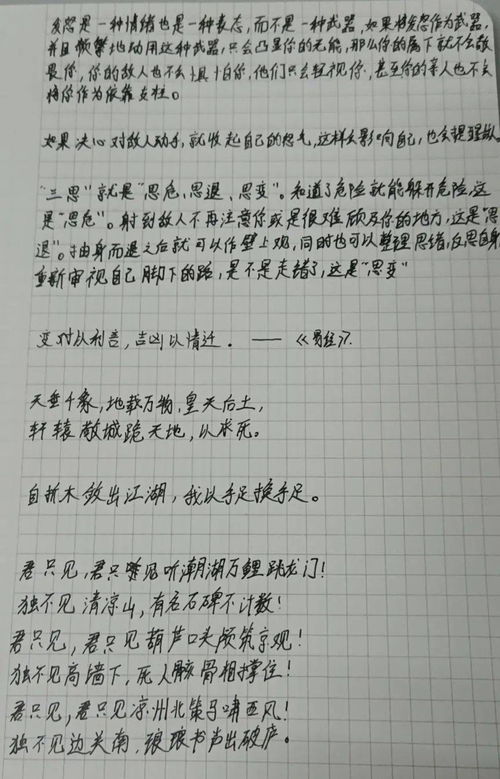 发怒是一种情绪也是一种表态,而不是一种武器,如果将发怒作为武器,
并且频繁地动用这种武器,只会凸显你的无能,那么你的属下就不会敬
畏你,你的敌人也不会惧怕你,他们只会轻视你,甚至你的亲人也不会
将你作为依靠支柱。
如果决心对敌人动手,就收起自己的怒气,这样会影响自己,也会提醒敌人。
“三思”就是“思危、思退、思变”。知道了危险就能躲开危险,这
是“思危”。躲到敌人不再注意你或是很难顾及你的地方,这是“思
退”。抽身而退之后就可以作壁上观,同时也可以整理思绪,反思自身
重新审视自己脚下的路,是不是走错了,这是“思变”
变动以利言,吉凶以情迁. —— 《易经》.
天垂千象,地载万物,皇天后土,
轩辕敬城跪天地,以求死。
自折木剑出江湖,我以手足换手足。
君只见,君只见听潮湖万鲤跳龙门!
独不见清凉山,有名石碑不计数!
君只见,君只见葫芦口头颅筑京观!
独不见高墙下,死人骸骨相撑住!
君只见,君只见凉州北策马啸西风!
独不见边关南,琅琅书声出破庐。